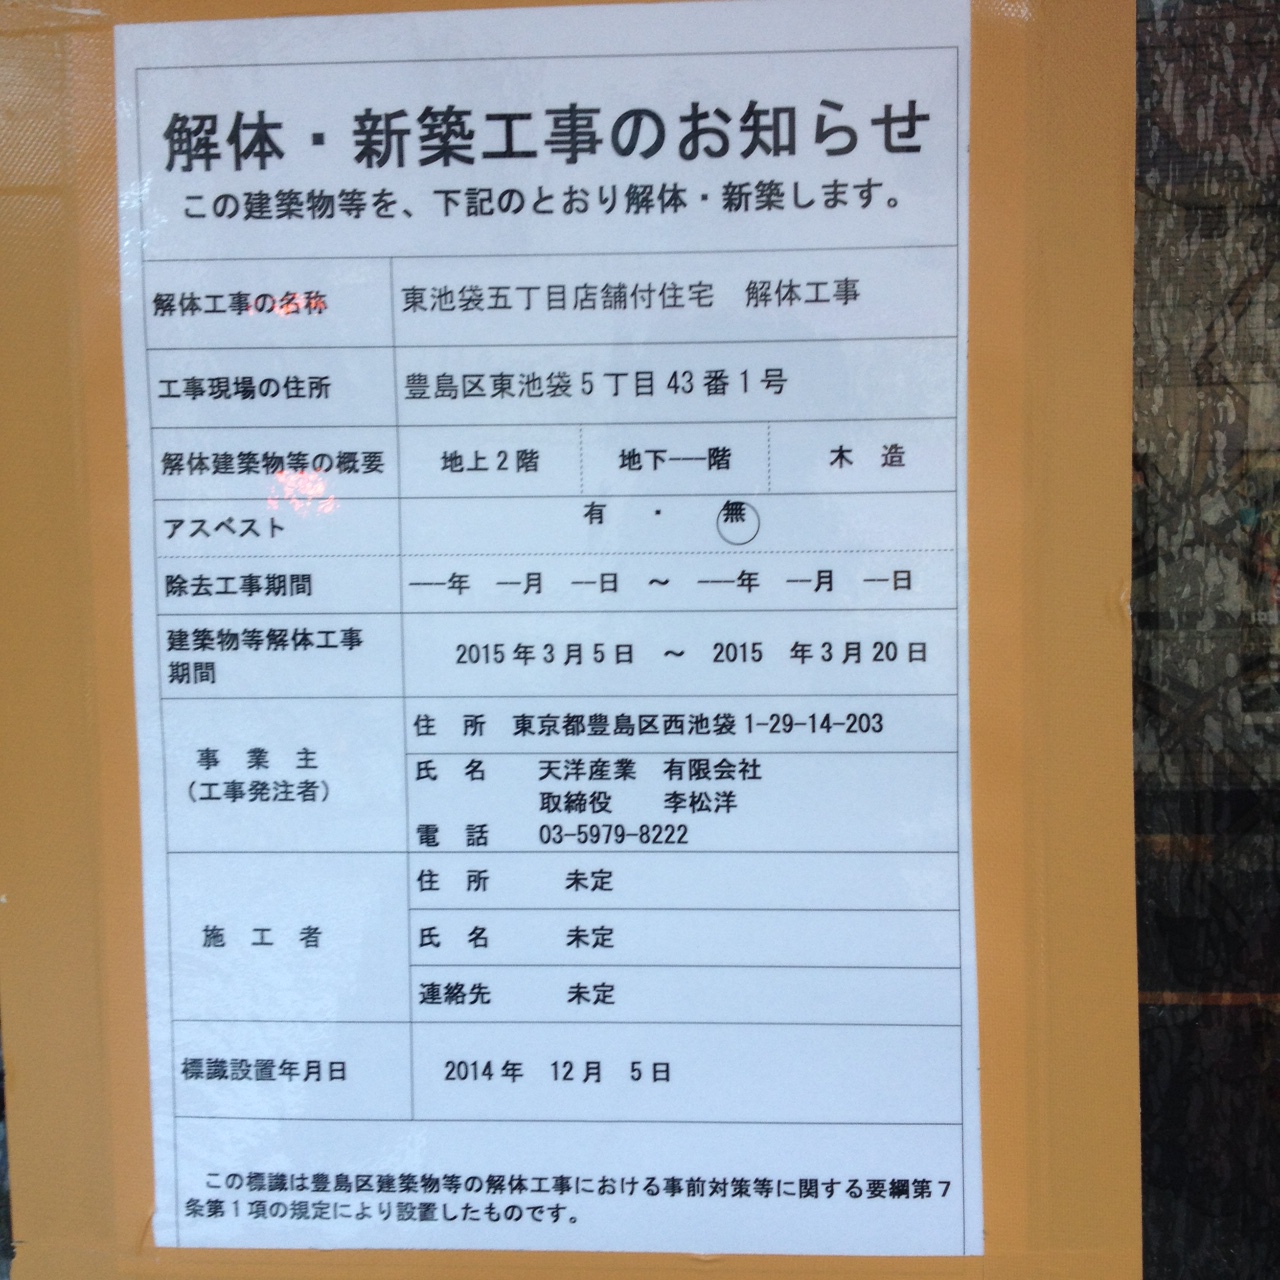 解体・新築工事のお知らせ
この建築物等を、下記のとおり解体・新築します。
解体工事の名称 東池袋五丁目店舗付住宅 解体工事
工事現場の住所 豊島区東池袋5丁目43番1号
解体建築物等の概要 地上2階 地下---階 木 造
アスベスト 有 ・ 無
除去工事期間 ---年 --月 --日 ～ ---年 --月 --日
建築物等解体工事
期間 2015年3月5日 ～ 2015 年3月20日
事 業 主
（工事発注者）
住 所 東京都豊島区西池袋1-29-14-203
氏 名 天洋産業 有限会社
取締役 李松洋
電 話 03-5979-8222
施 工 者
住 所 未定
氏 名 未定
連絡先 未定
標識設置年月日 2014年 12月 5日
この標識は豊島区建築物等の解体工事における事前対策等に関する要綱第7
条第1項の規定により設置したものです。